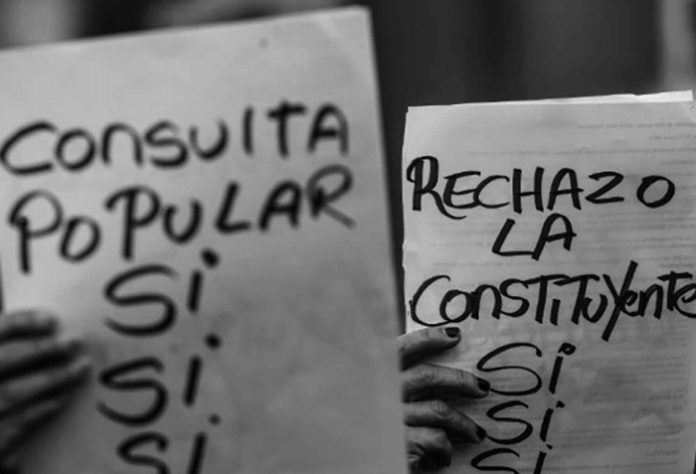 CONSULTA
POPULAR
Si
Si
Si
RECHAZO
LA
CONSTITUYENTE
Si
Si
Si